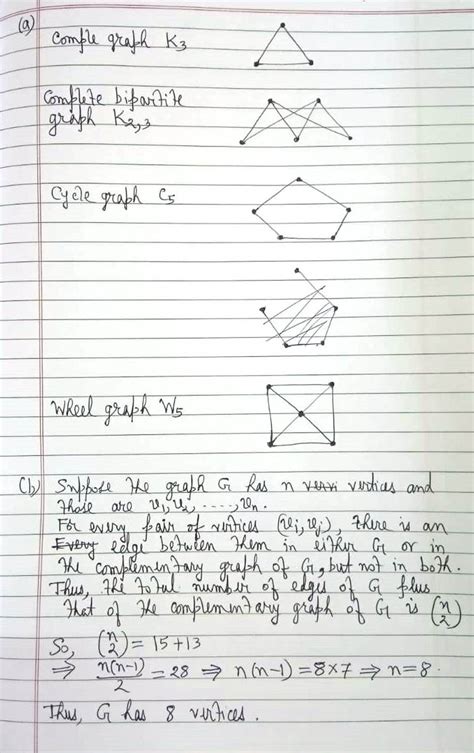 (a)
Comple graph K3
Complete bipartite
graph K2,3
Cycle graph C5
Wheel graph W5
(b) Suppose the graph G has n vertices and
those are v1, v2, ...., vn.
For every pair of vertices (vi, vj), there is an
Every edge between them in either G or in
the complementary graph of G, but not in both.
Thus, the total number of edges of G plus
that of the complementary graph of G is (n 2)
So, (n 2) = 15+13
⇒ n(n-1)/2 = 28 ⇒ n(n-1) = 8×7 ⇒ n=8.
Thus, G has 8 vertices.